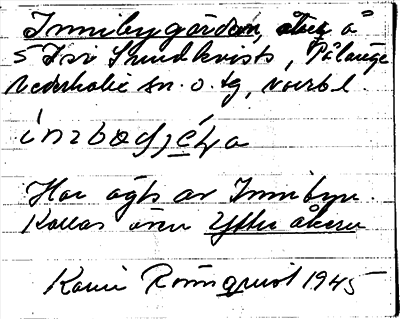 Innibygärdan, åker å
5 Fri Sundkvists, Pålänge
Nederkalix sn. o. tg, Norrb l.
Har ägts av Innibyn.
Kallas även Yttre åkern
Karin Rönnquist 1945